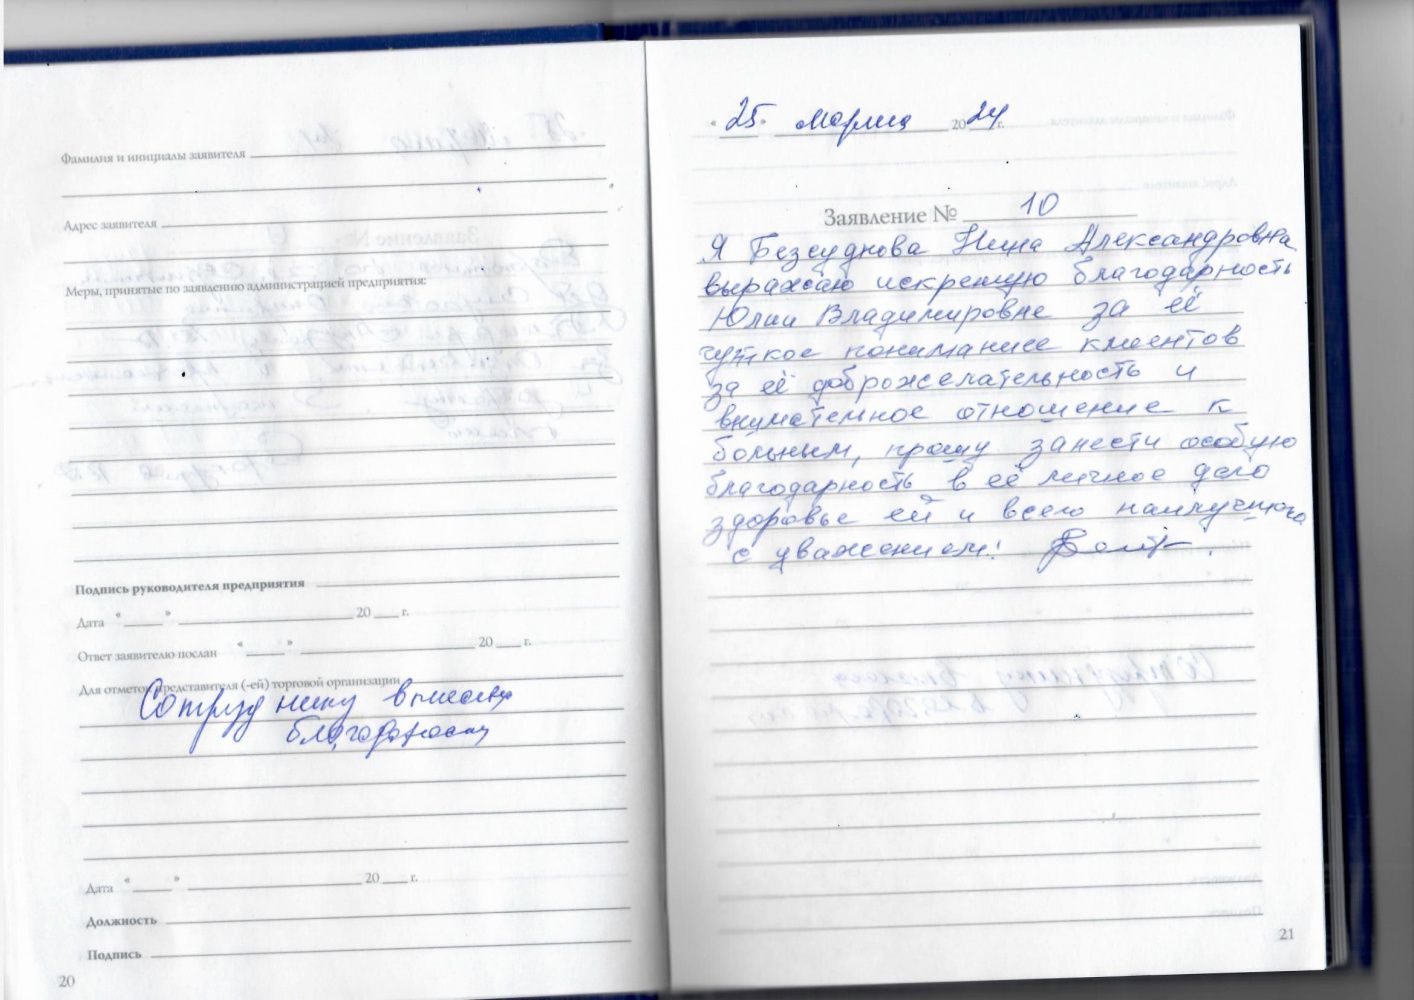 Фамилия и инициалы заявителя
Адрес заявителя
Меры, принятые по заявлению администрацией предприятия:
Подпись руководителя предприятия
Дата « » 20 г.
Ответ заявителю послан « » 20 г.
Для отметок представителя (-ей) торговой организации
Сотруднику вынести
благодарность
Дата « » 20 г.
Должность
Подпись
20
«25» марта 2024 г.
Заявление № 10
Я Безсуднова Нина Александровна
выражаю искренную благодарность
Юлии Владимировне за её
чуткое понимание клиентов
за её доброжелательность и
внимательное отношение к
больным, прошу занести особую
благодарность в её личное дело
здоровье ей и всего наилучшего
с уважением!
21